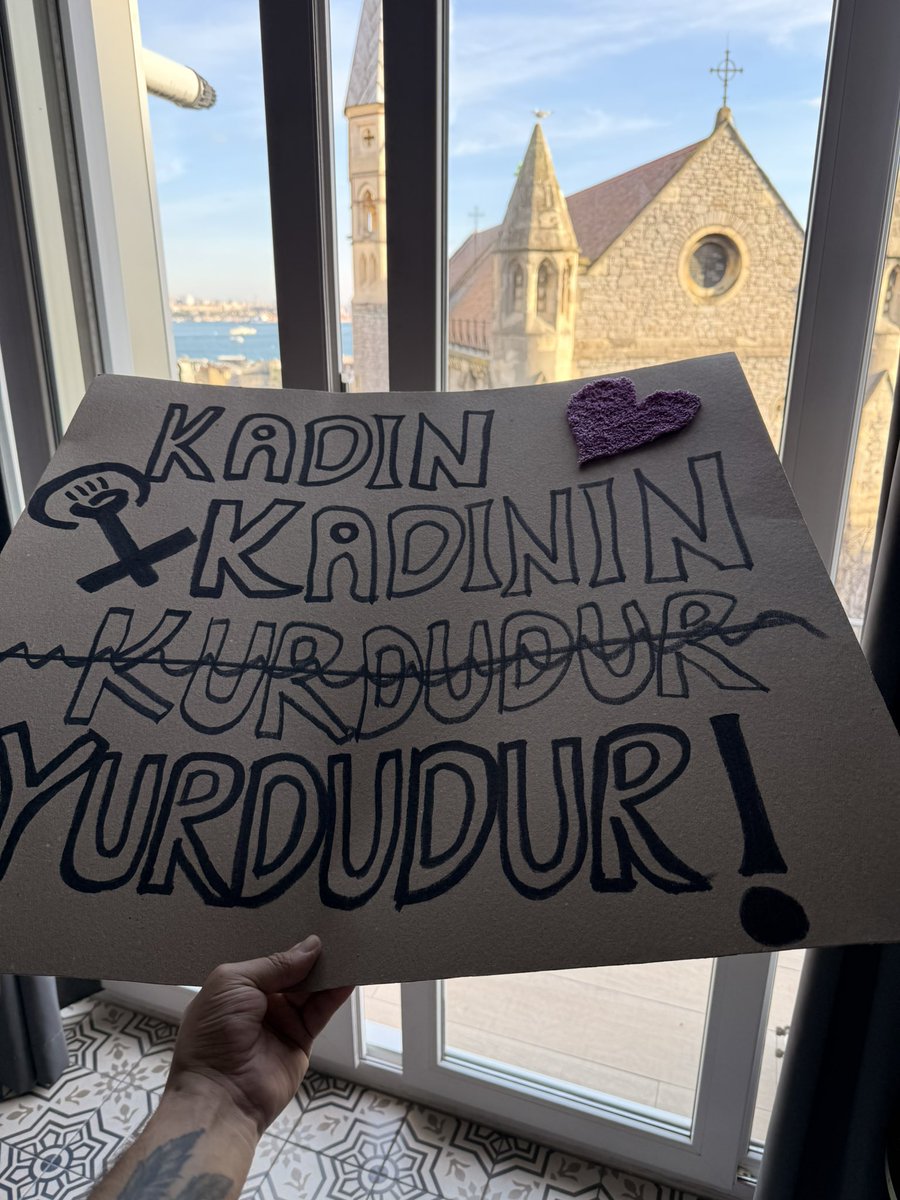 KADIN
KADININ
KURDUDUR
YURDUDUR!